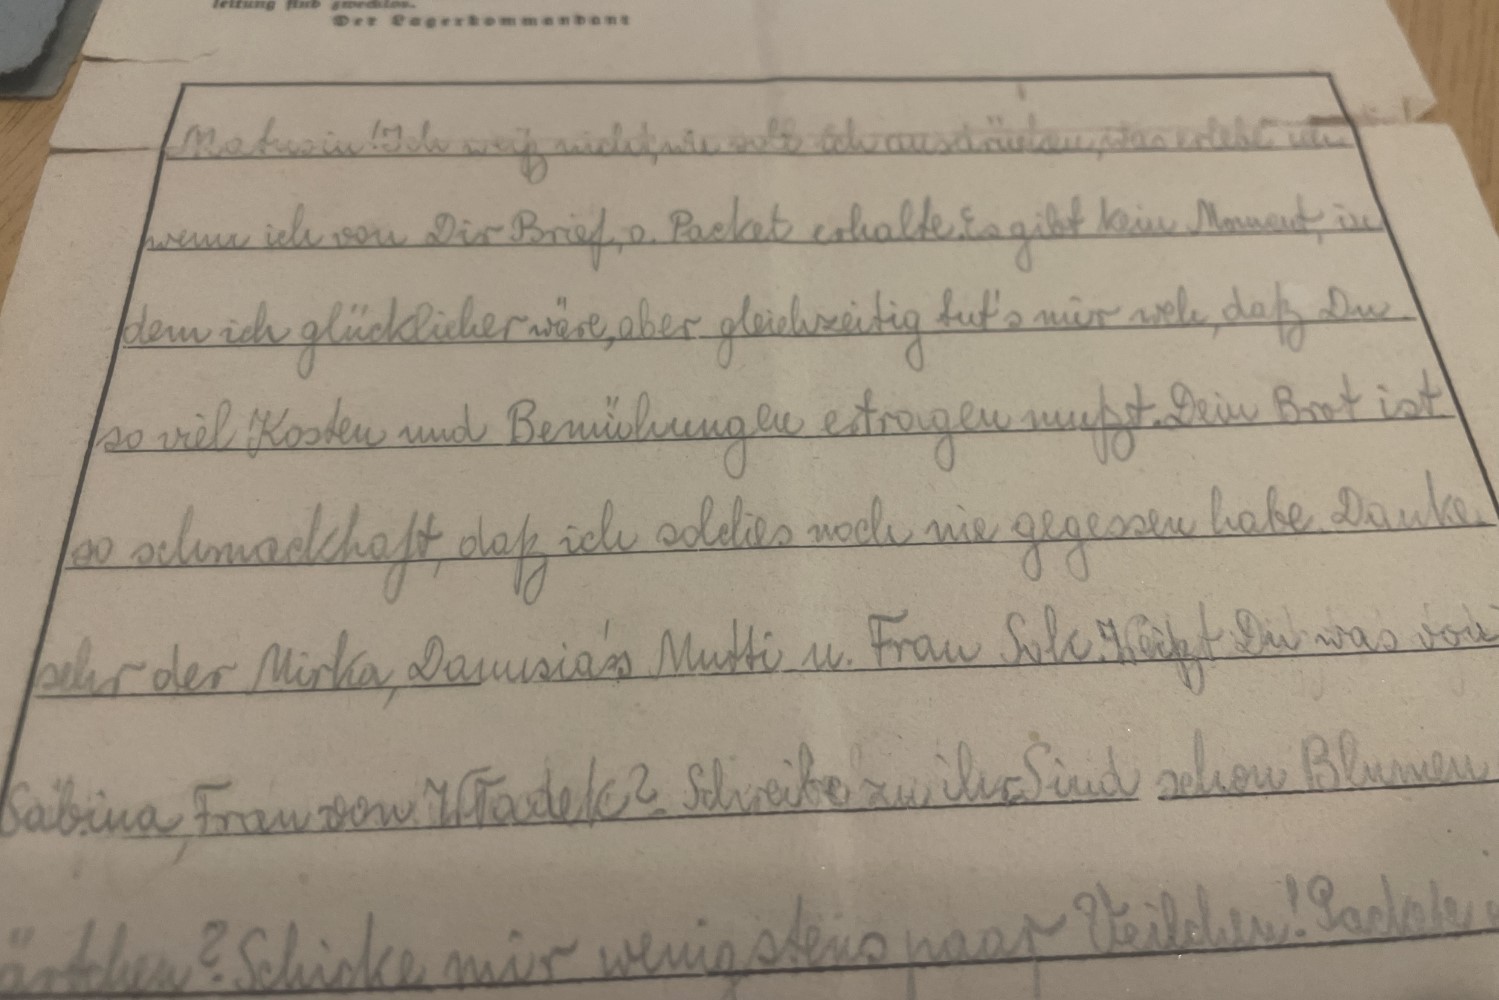 leitung sind zwecklos.
Der Lagerkommandant
Matusiu! Ich weiß nicht, wie soll ich ausdrücken, was erlebt ich
wenn ich von Dir Brief, o. Packet erhalte. Es gibt kein Moment, in
dem ich glücklicher wäre, aber gleichzeitig tut's mir weh, daß Du
so viel Kosten und Bemühungen ertragen mußt. Dein Brot ist
so schmackhaft, daß ich solches noch nie gegessen habe. Danke
sehr der Mirka, Danusia's Mutti u. Frau Solc. Weißt Du was von
Sabina, Frau von Władek? Schreibe zu ihr. Sind schon Blumen
ärtchen? Schicke mir wenigstens paar Veilchen! Packete